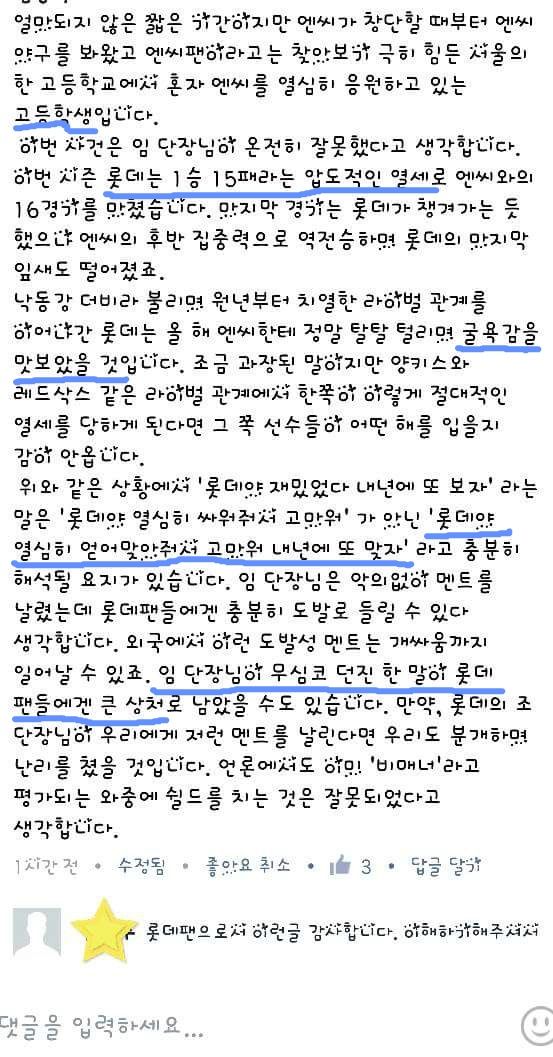 얼마되지 않은 짧은 기간이지만 엔씨가 창단할 때부터 엔씨
야구를 봐왔고 엔씨팬이라고는 찾아보기 극히 힘든 서울의
한 고등학교에서 혼자 엔씨를 열심히 응원하고 있는
고등학생입니다.
이번 사건은 임 단장님이 온전히 잘못했다고 생각합니다.
이번 시즌 롯데는 1승 15패라는 압도적인 열세로 엔씨와의
16경기를 마쳤습니다. 마지막 경기는 롯데가 챙겨가는 듯
했으나 엔씨의 후반 집중력으로 역전승하며 롯데의 마지막
잎새도 떨어졌죠.
낙동강 더비라 불리며 원년부터 치열한 라이벌 관계를
이어나간 롯데는 올 해 엔씨한테 정말 탈탈 털리며 굴욕감을
맛보았을 것입니다. 조금 과장된 말이지만 양키스와
레드삭스 같은 라이벌 관계에서 한쪽이 이렇게 절대적인
열세를 당하게 된다면 그 쪽 선수들이 어떤 해를 입을지
감이 안옵니다.
위와 같은 상황에서 '롯데야 재밌었다 내년에 또 보자' 라는
말은 '롯데야 열심히 싸워줘서 고마워' 가 아닌 '롯데야
열심히 얻어맞아줘서 고마워 내년에 또 맞자' 라고 충분히
해석될 요지가 있습니다. 임 단장님은 악의없이 멘트를
날렸는데 롯데팬들에겐 충분히 도발로 들릴 수 있다
생각합니다. 외국에서 이런 도발성 멘트는 개싸움까지
일어날 수 있죠. 임 단장님이 무심코 던진 한 말이 롯데
팬들에겐 큰 상처로 남았을 수도 있습니다. 만약, 롯데의 조
단장님이 우리에게 저런 멘트를 날린다면 우리도 분개하며
난리를 쳤을 것입니다. 언론에서도 이미 '비매너'라고
평가되는 와중에 쉴드를 치는 것은 잘못되었다고
생각합니다.
1시간 전 • 수정됨 • 좋아요 취소 • 3 • 답글 달기
롯데팬으로서 이런글 감사합니다. 이해하기해주셔서
댓글을 입력하세요...